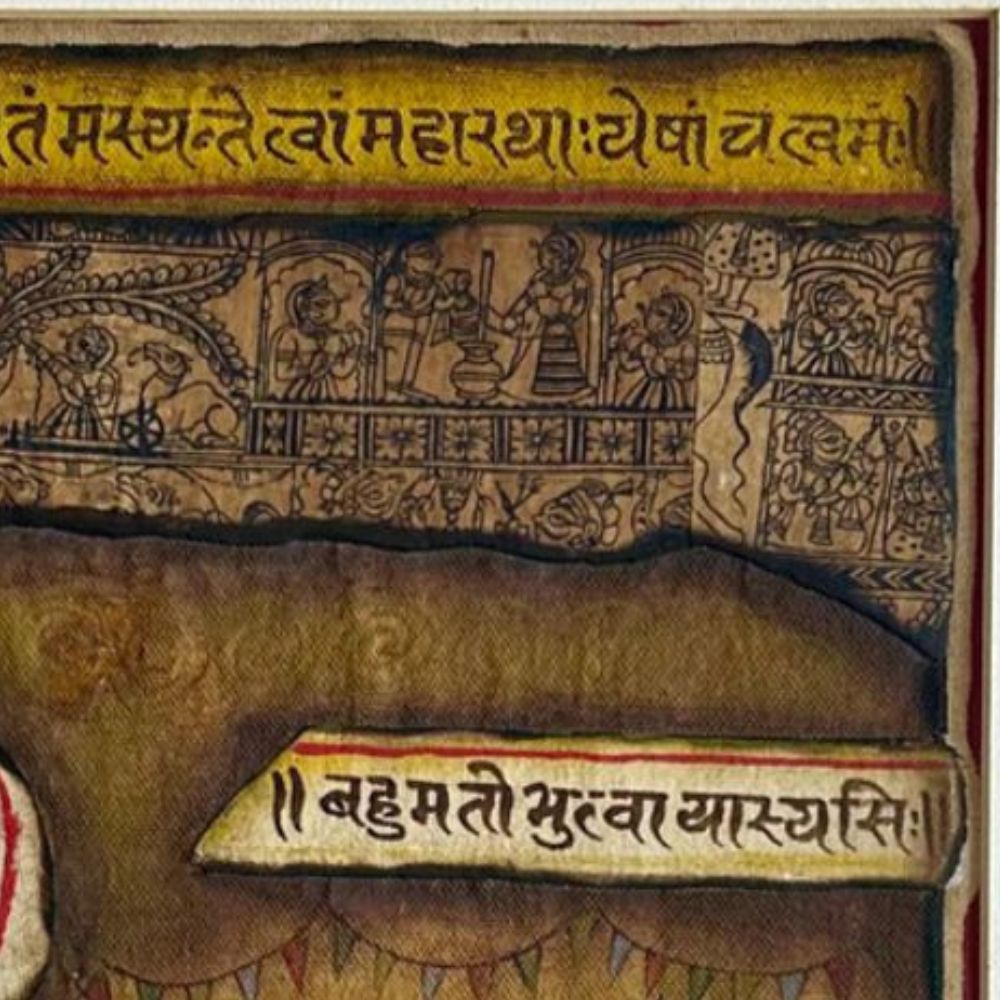 तं मस्यन्ते त्वां महारथाः येषां च त्वमः॥
॥ बहुमतो भुत्वा यास्यसिः॥